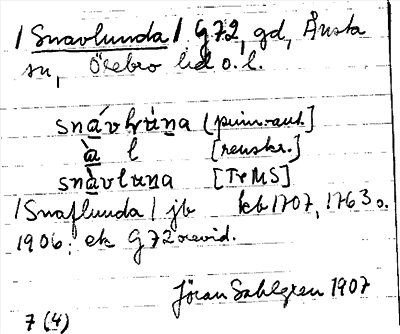 /Snavlunda/ G72, gd, Ånsta
sn, Örebro lid o. l.
snávhùna [prim.-aut.]
à l [renskr.]
snàvluna [TrMS]
/Snaflunda/ jb kb 1707, 1763 o.
1906; ek G72 orevid.
Jöran Sahlgren 1907
7 (4)